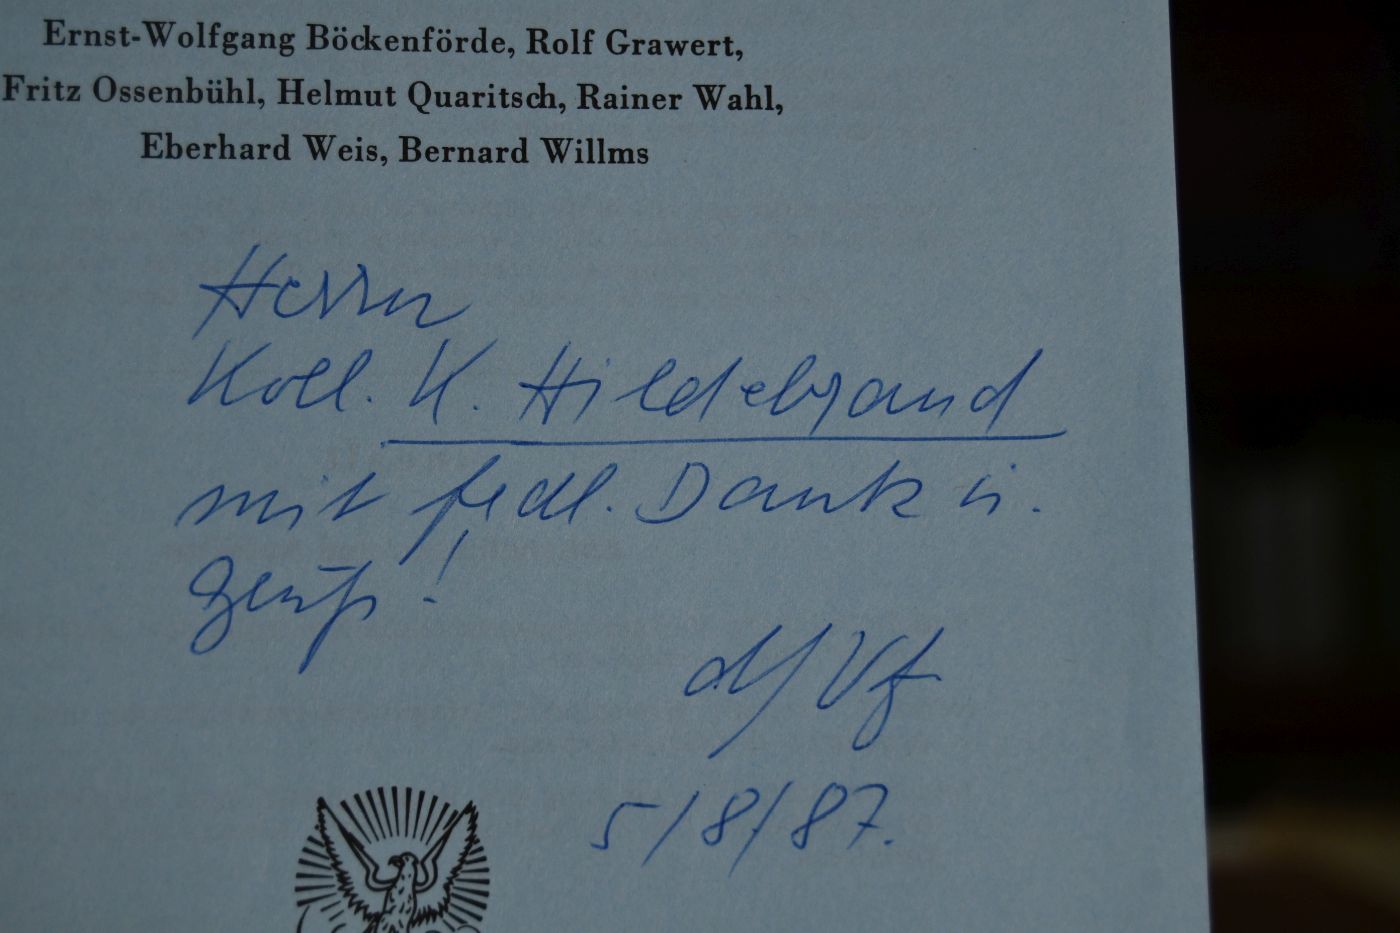 Ernst-Wolfgang Böckenförde, Rolf Grawert,
Fritz Ossenbühl, Helmut Quaritsch, Rainer Wahl,
Eberhard Weis, Bernard Willms
Herrn
Koll. K. Hildebrand
mit frdl. Dank u.
Gruß!
d/Vf
5/8/87.